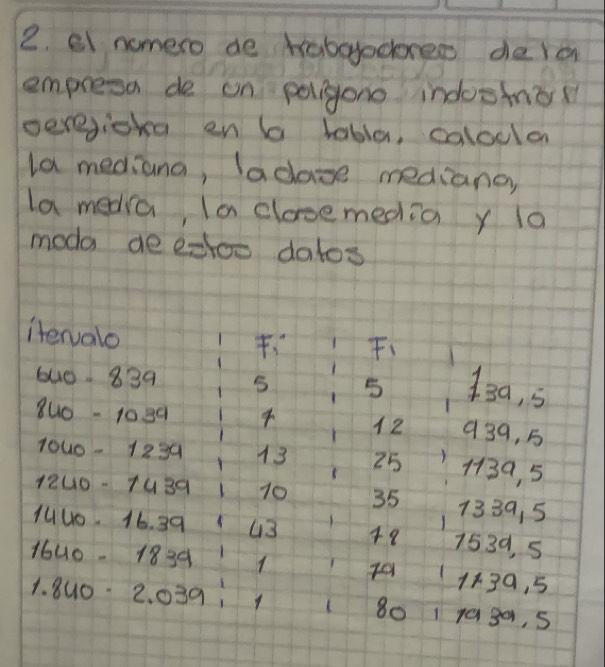 2. el numero de trabajadores de la
empresa de un poligono industrial
se registra en la tabla. calcula
la mediana, la clase mediana,
la media, la clase media y la
moda de estos datos
itervalo Fi Fi
640 - 839 5 5 739,5
840 - 1039 7 12 939,5
1040 - 1239 13 25 1139,5
1240 - 1439 10 35 1339,5
1440 - 16.39 43 78 1539,5
1640 - 1839 1 79 1739,5
1.840 - 2.039 1 80 1939.5